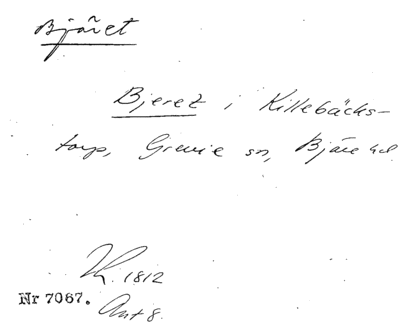 Bjäret
Bjeret i Killebäcks-
torp, Grevie sn, Bjäre hd
1812
Nr 7067. Ant 8.